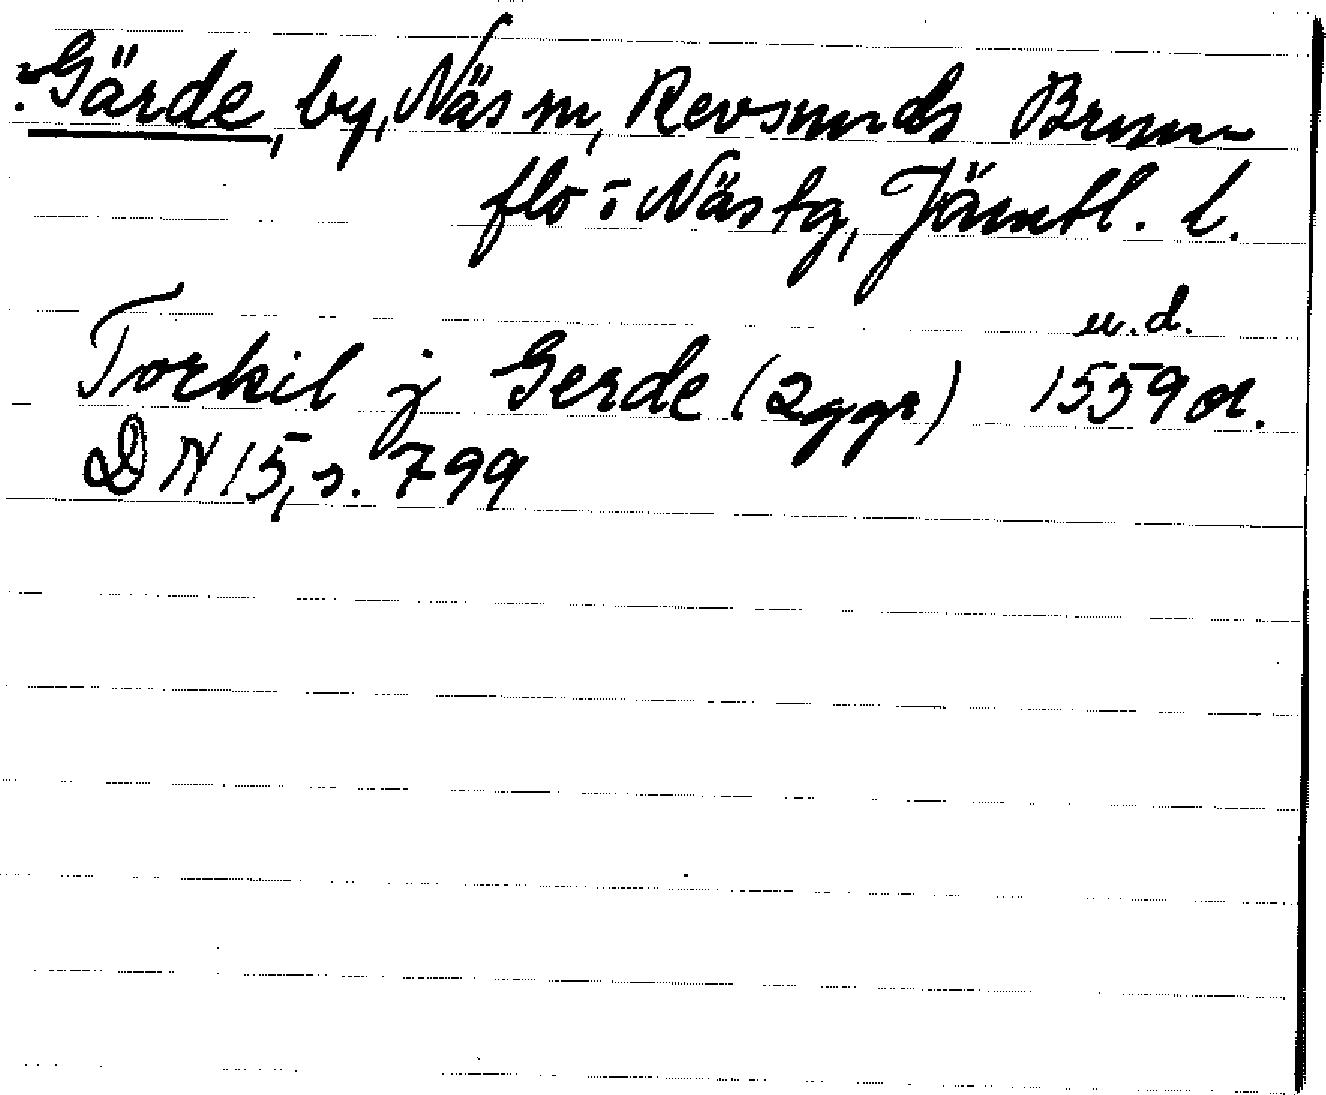 Gärde, by, Näs sn, Revsunds Brun-
flo o Näs tg, Jämtl. l.
u.d.
Torkil j Gerde (2ggr) 1559 or.
DN 15, s. 799